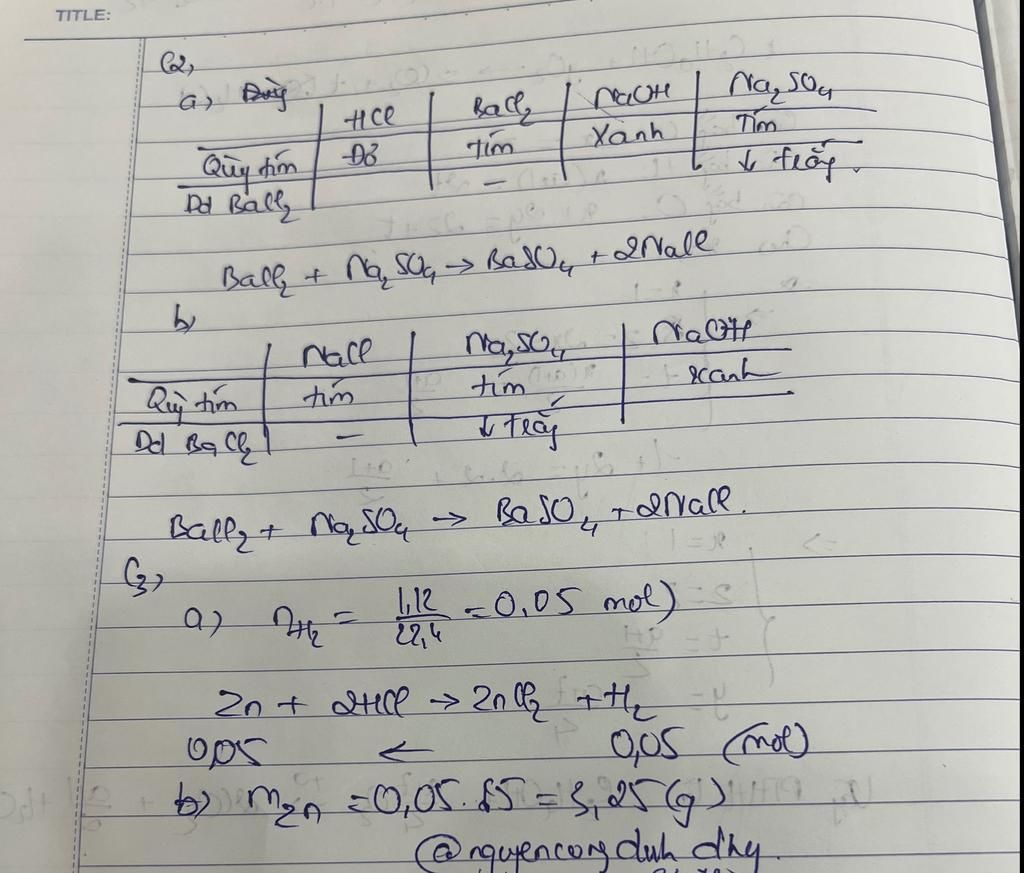 TITLE:
C2,
a)
HCl BaCl2 NaOH Na2SO4
Quỳ tím Đỏ Tím Xanh Tím
Dd BaCl2 – ↓ trắng.
BaCl2 + Na2SO4 → BaSO4 + 2NaCl
b)
NaCl Na2SO4 NaOH
Quỳ tím tím tím xanh
Dd BaCl2 – ↓ trắng
BaCl2 + Na2SO4 → BaSO4 + 2NaCl.
C3,
a) nH2 = 1,12/22,4 = 0,05 mol)
Zn + 2HCl → ZnCl2 + H2
0,05 ← 0,05 (mol)
b) mZn = 0,05.65 = 3,25(g)